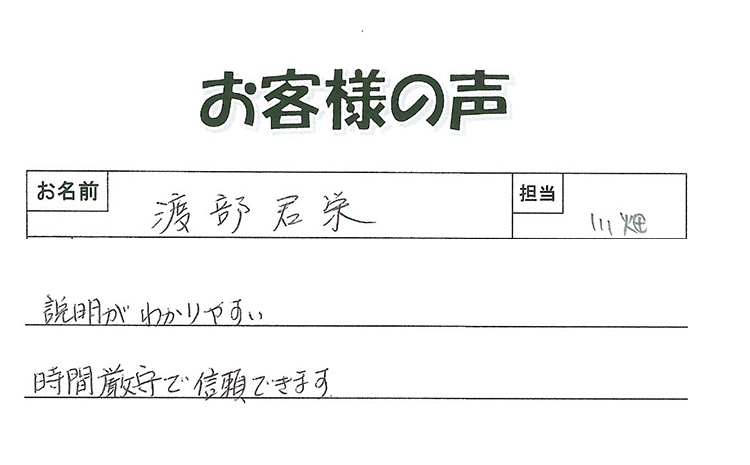 お客様の声
お名前 渡部君栄 担当 川畑
説明がわかりやすい
時間厳守で信頼できます